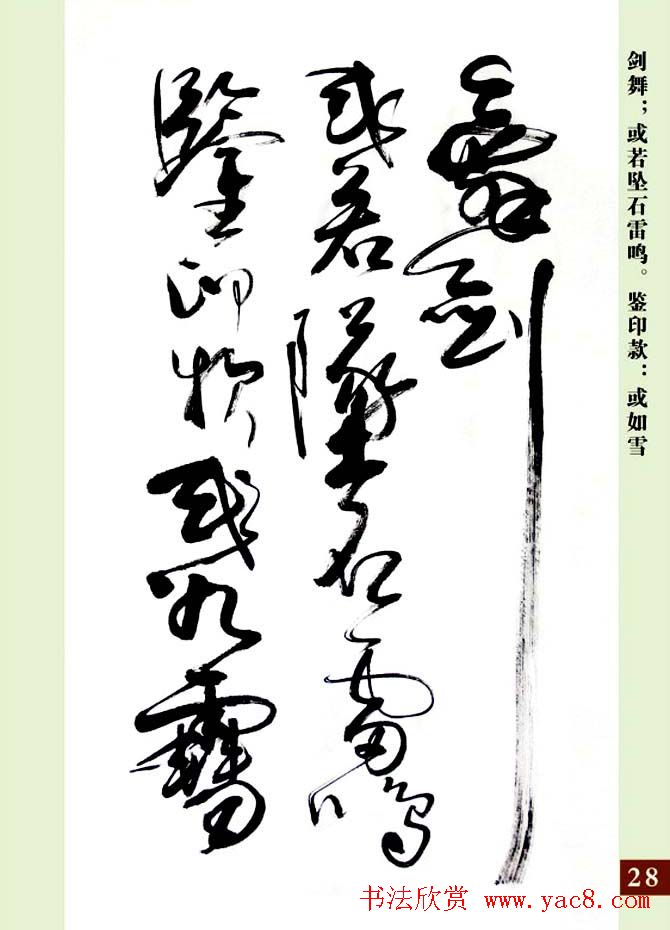 剑舞；或若坠石雷鸣。鉴印款：或如雪
舞劍
或若墜石雷鳴
鑒印款或如雪
28
书法欣赏 www.yac8.com